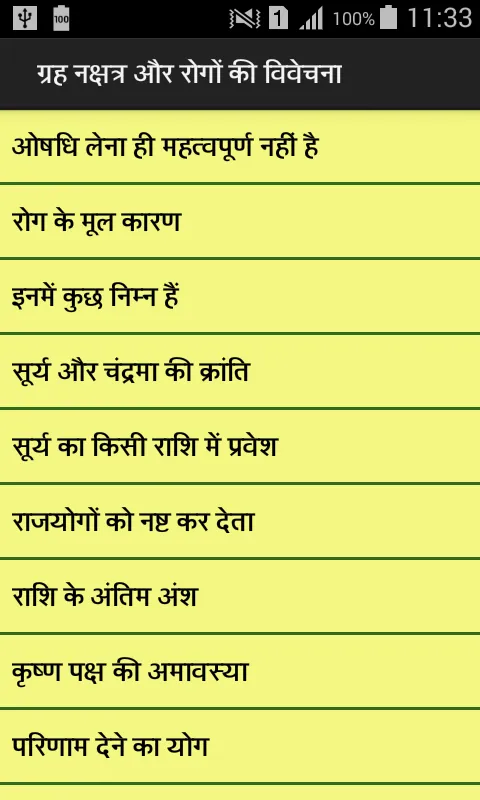 100 1 100% 11:33
ग्रह नक्षत्र और रोगों की विवेचना
ओषधि लेना ही महत्वपूर्ण नहीं है
रोग के मूल कारण
इनमें कुछ निम्न हैं
सूर्य और चंद्रमा की क्रांति
सूर्य का किसी राशि में प्रवेश
राजयोगों को नष्ट कर देता
राशि के अंतिम अंश
कृष्ण पक्ष की अमावस्या
परिणाम देने का योग